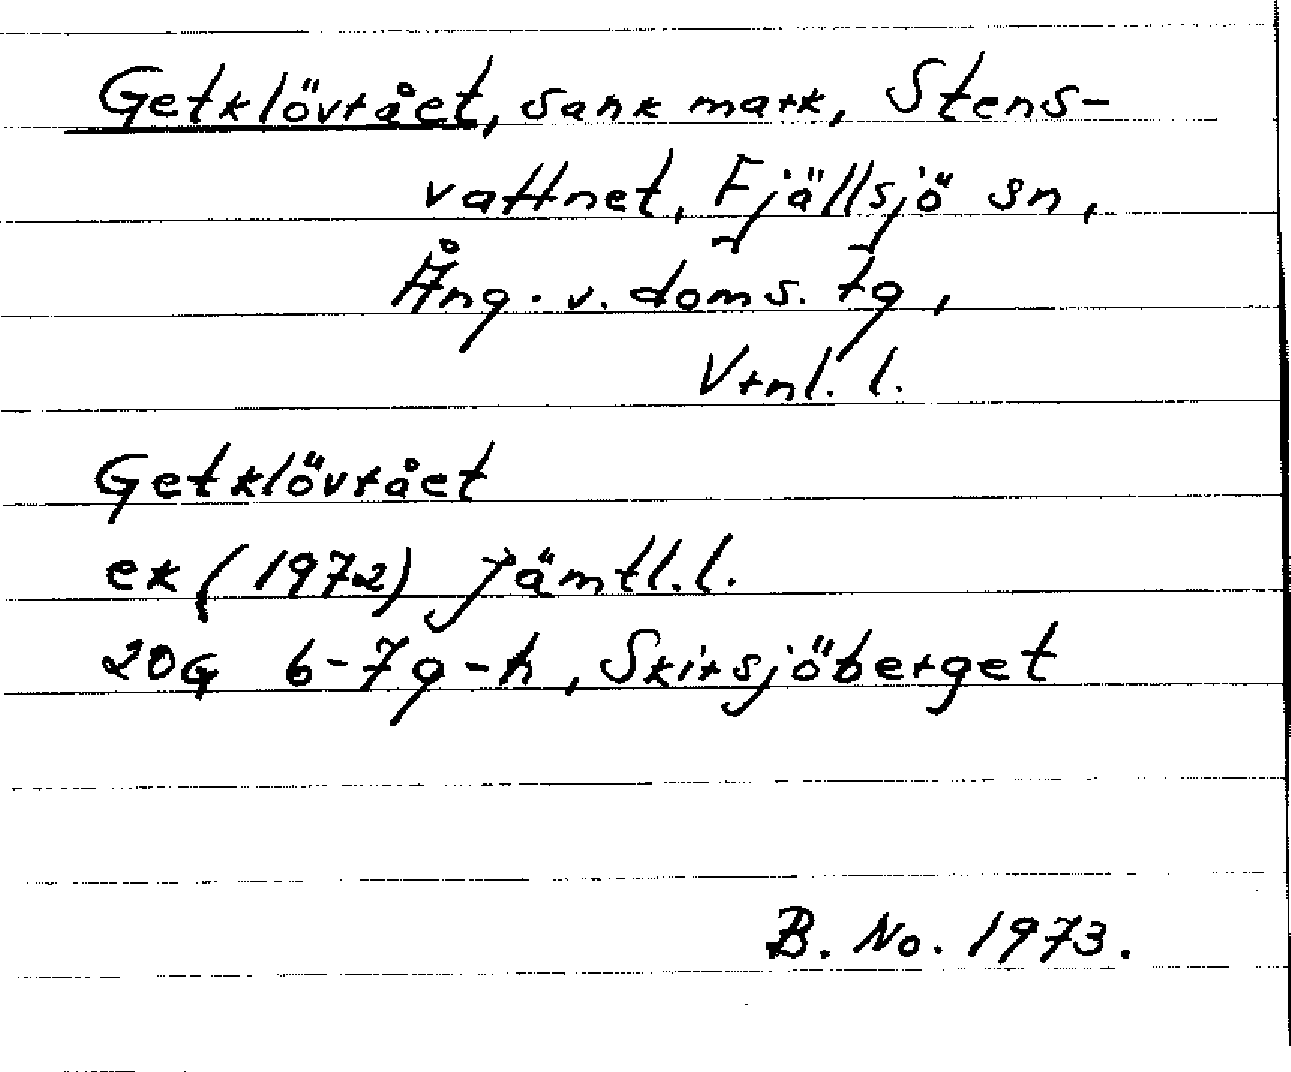 Getklövrået, sank mark, Stens-
vattnet, Fjällsjö sn,
Ång. v. doms. tg,
Vrnl. l.
Getklövrået
ek (1972) Jämtl. l.
20G 6-7g-h, Skirsjöberget
B. No. 1973.